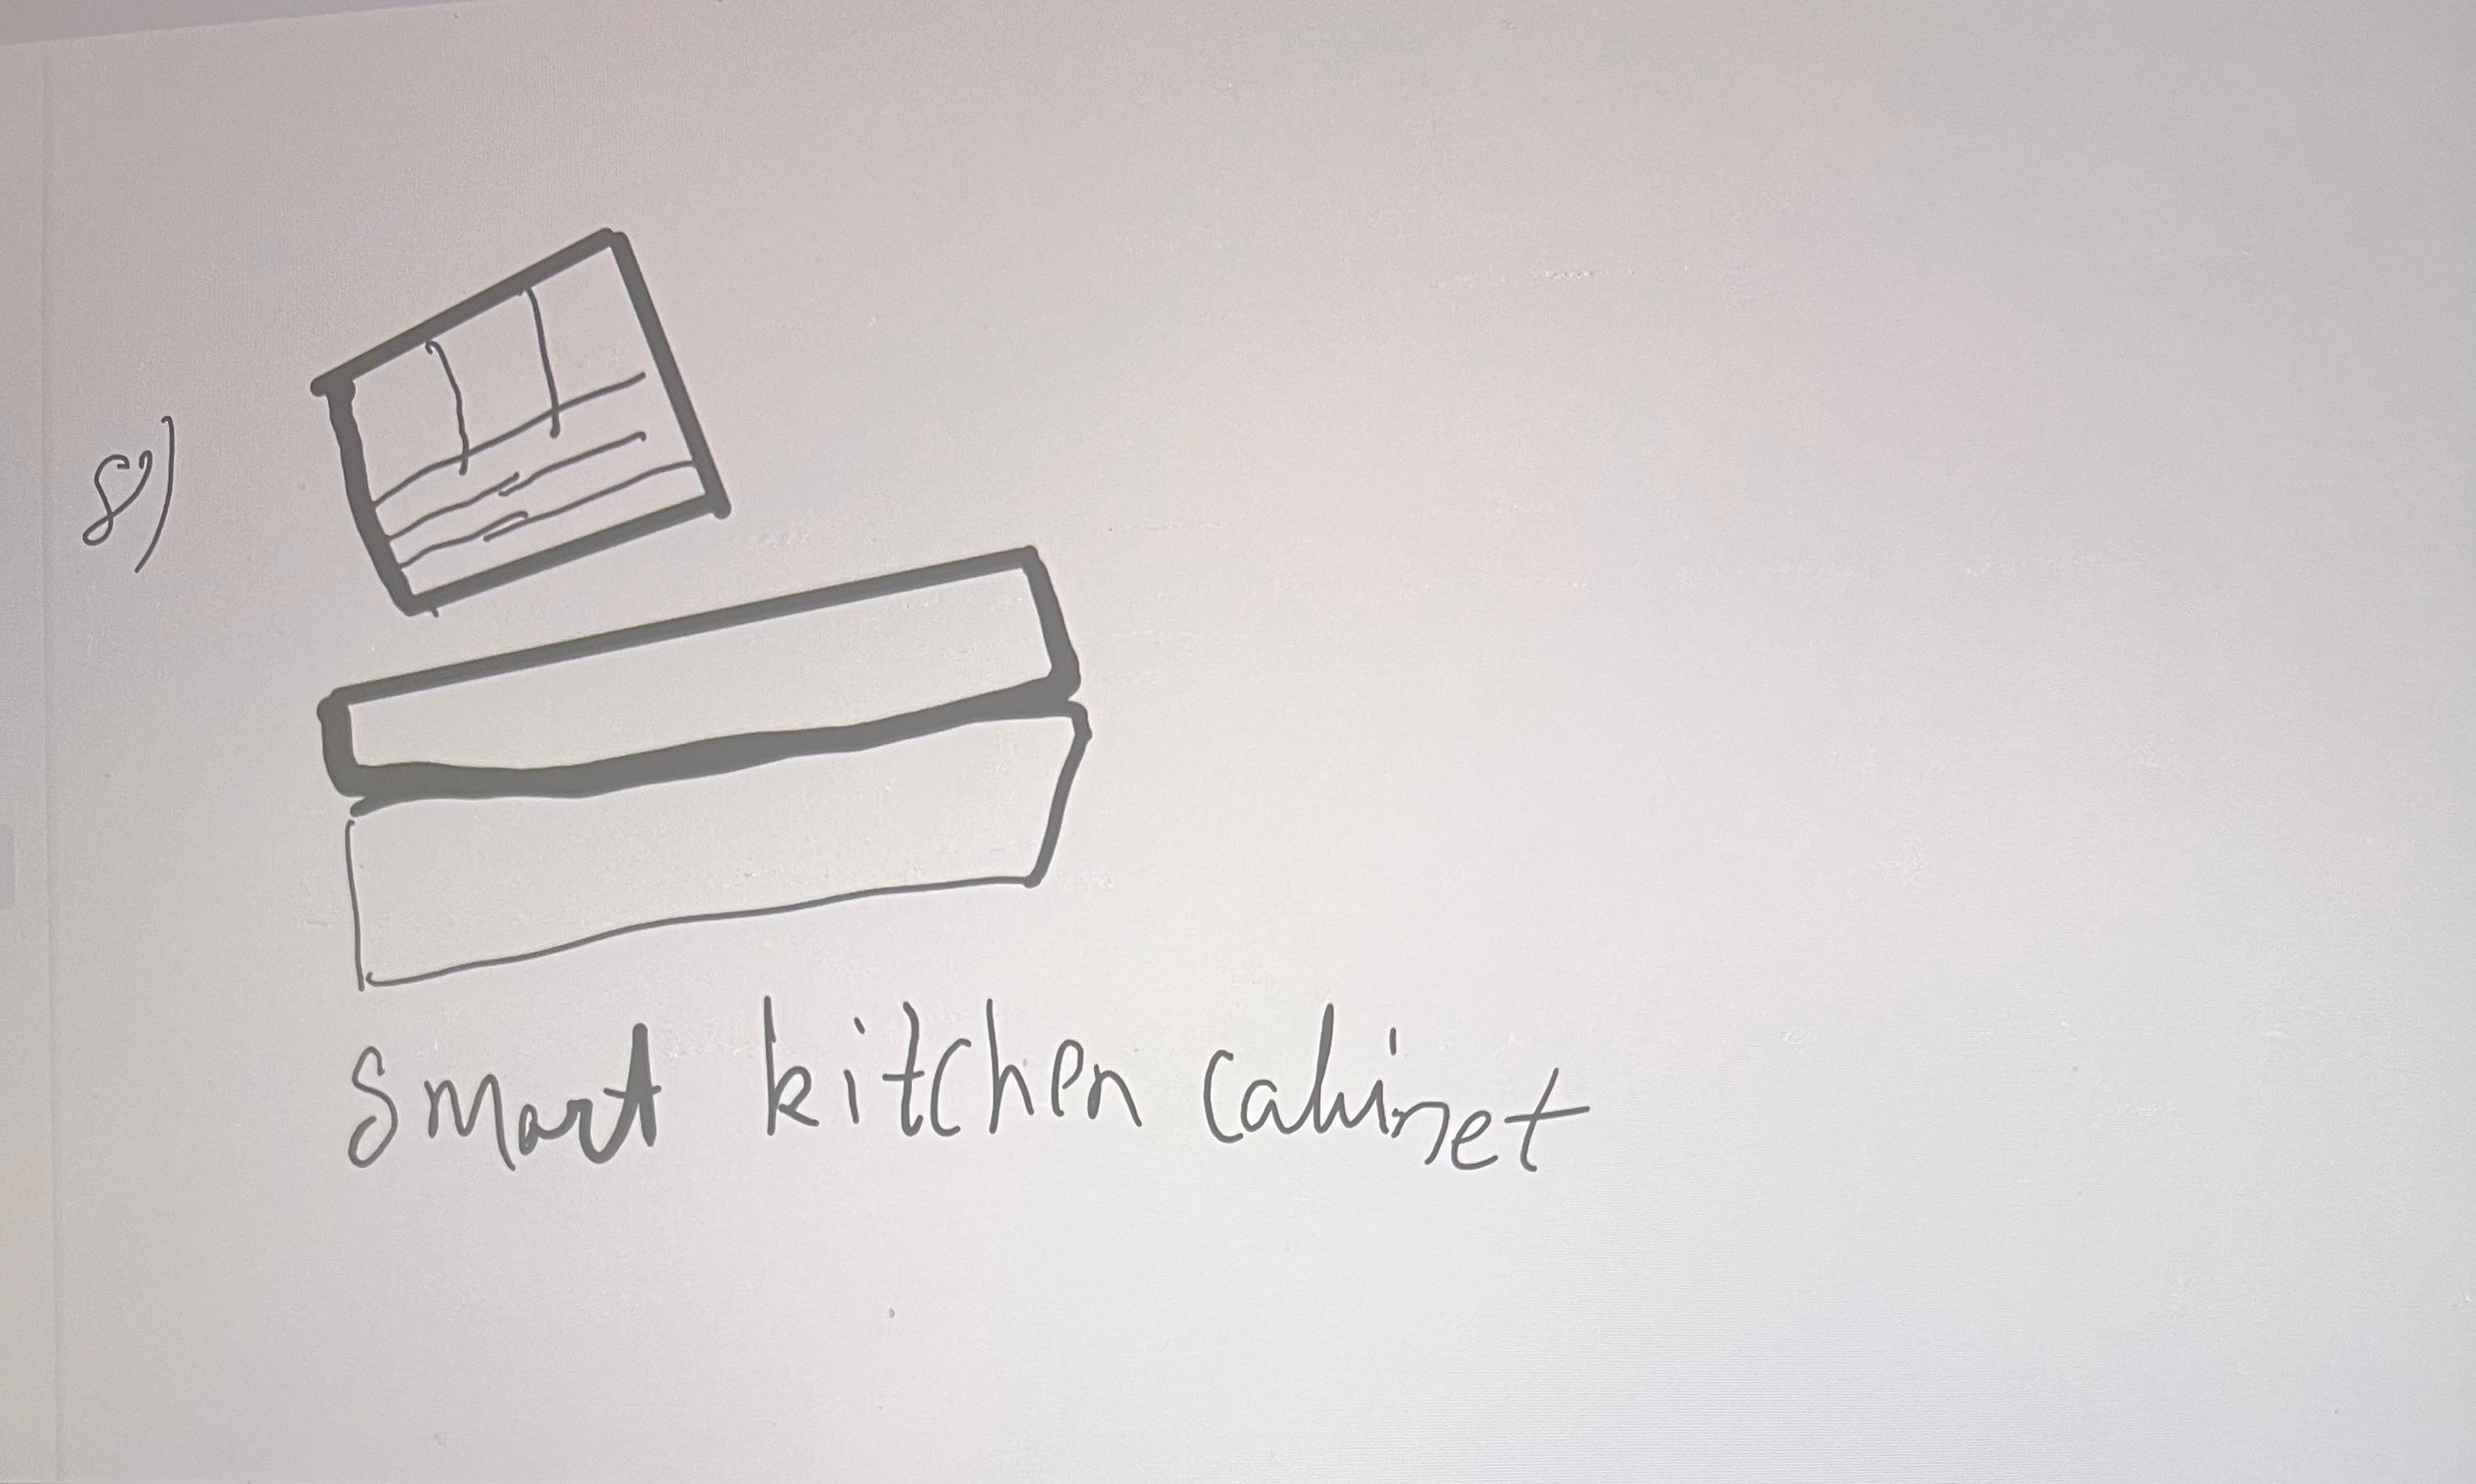 8)
Smart kitchen cabinet